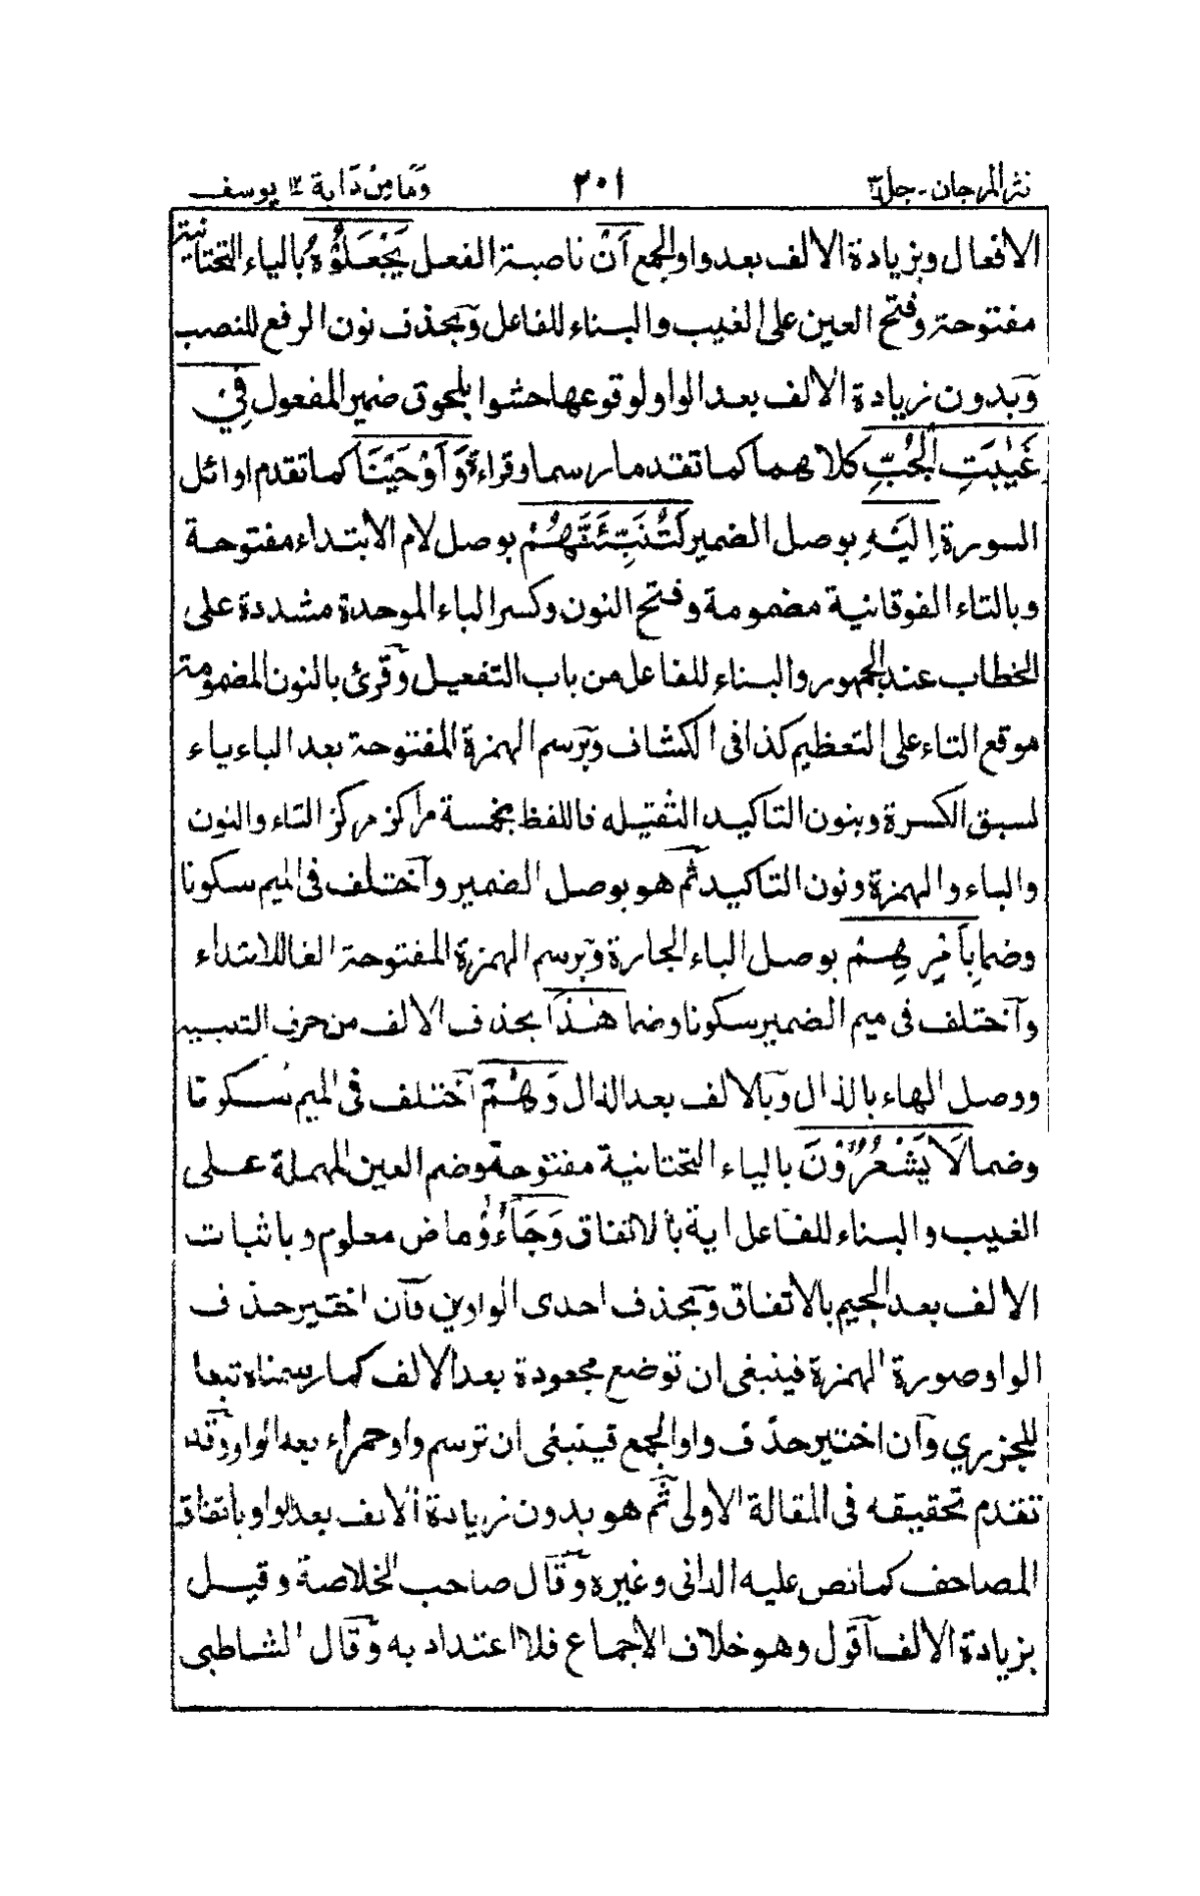 نثر المرجان - جل ٣
٢٠١
وَمَا مِنْ دَابة ١٢ يوسف
الافعال وبزيادة الالف بعد واو الجمع اَنْ ناصبة الفعل يَجْعَلُوْهُ بالياء التحتانية
مفتوحة وفتح العين على الغيب والبناء للفاعل وبحذف نون الرفع للنصب
وبدون زيادة الالف بعد الواو لوقوعها حشوا بلحوق ضمير المفعول فِيْ
غَيٰبَتِ الْجُبِّ كلاهما كما تقدما رسما وقراءة وَاَوْحَيْنَا كما تقدم اوائل
السورة اِلَيْهِ بوصل الضمير لَتُنَبِّئَنَّهُمْ بوصل لام الابتداء مفتوحة
وبالتاء الفوقانية مضمومة وفتح النون وكسر الباء الموحدة مشددة على
الخطاب عند الجمهور والبناء للفاعل من باب التفعيل وقرئ بالنون المضمومة
موقع التاء على التعظيم كذا فى الكشاف وبرسم الهمزة المفتوحة بعد الباء ياء
لسبق الكسرة وبنون التاكيد الثقيله فاللفظ بخمسة مراكز مركز التاء والنون
والباء والهمزة ونون التاكيد ثم هو بوصل الضمير واختلف فى الميم سكونا
وضما بِاَمْرِهِمْ بوصل الباء الجارة وبرسم الهمزة المفتوحة الفا للابتداء
واختلف فى ميم الضمير سكونا وضما هٰذَا بحذف الالف من حرف التنبيه
ووصل الهاء بالذال وبالالف بعد الذال وَهُمْ اختلف فى الميم سكونا
وضما لَا يَشْعُرُوْنَ بالياء التحتانية مفتوحة وضم العين المهملة على
الغيب والبناء للفاعل اية بالاتفاق وَجَاءُوْ ماض معلوم وباثبات
الالف بعد الجيم بالاتفاق وبحذف احدى الواوين فان اختير حذف
الواو صورة الهمزة فينبغى ان توضع مجعودة بعد الالف كما رسمناه تبعا
للجزري وان اختير حذف واو الجمع فينبغى ان ترسم واو حمراء بعد الواو وقد
تقدم تحقيقه فى المقالة الاولى ثم هو بدون زيادة الالف بعد الواو باتفاق
المصاحف كما نص عليه الدانى وغيره وقال صاحب الخلاصة وقيل
بزيادة الالف اقول وهو خلاف الاجماع فلا اعتداد به وقال الشاطبى